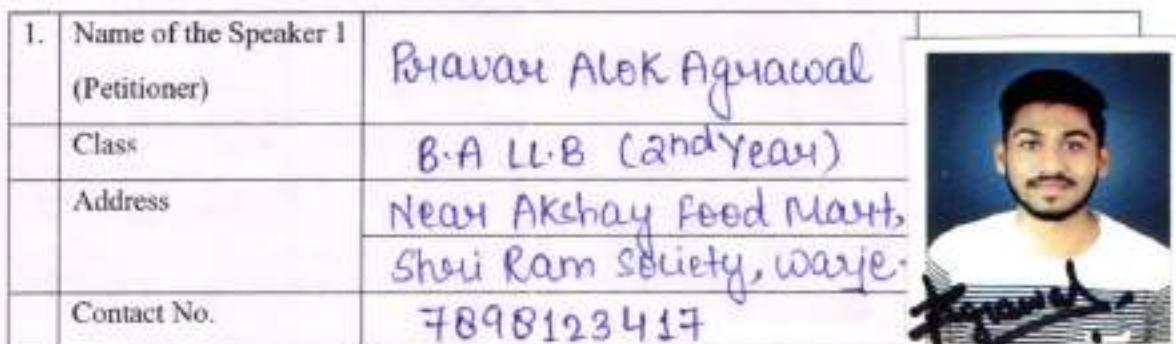 1. Name of the Speaker 1
(Petitioner)
Pravar Alok Agrawal
Class
B.A LL.B (2nd Year)
Address
Near Akshay Food Mart,
Shri Ram Society, Warje.
Contact No.
7898123417
Pagrawal